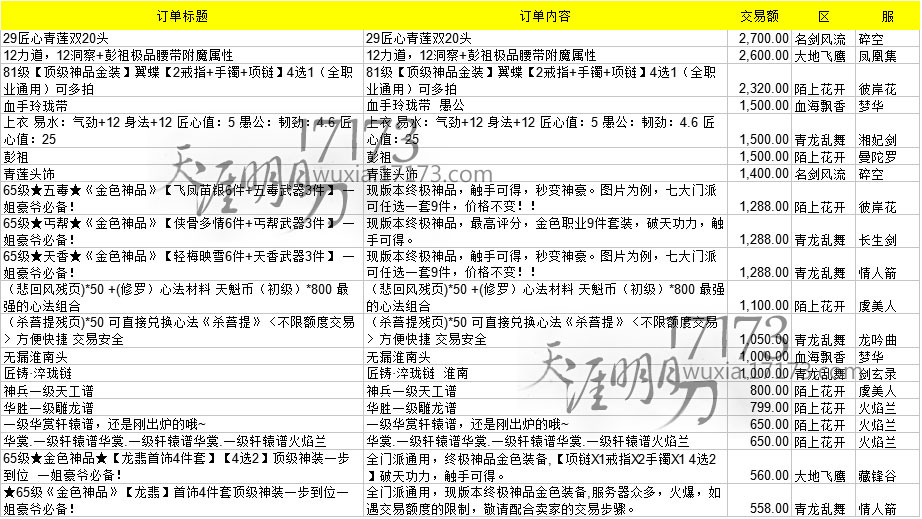 订单标题 订单内容 交易额 区 服
29匠心青莲双20头 29匠心青莲双20头 2,700.00 名剑风流 碎空
12力道，12洞察+彭祖极品腰带附魔属性 12力道，12洞察+彭祖极品腰带附魔属性 2,600.00 大地飞鹰 凤凰集
81级【顶级神品金装】翼蝶【2戒指+手镯+项链】4选1（全职 81级【顶级神品金装】翼蝶【2戒指+手镯+项链】4选1（全职
业通用）可多拍 业通用）可多拍 2,320.00 陌上花开 彼岸花
血手玲珑带 血手玲珑带 愚公 1,500.00 血海飘香 梦华
上衣 易水：气劲+12 身法+12 匠心值：5 愚公：韧劲：4.6 匠 上衣 易水：气劲+12 身法+12 匠心值：5 愚公：韧劲：4.6 匠
心值：25 心值：25 1,500.00 青龙乱舞 湘妃剑
彭祖 彭祖 1,500.00 陌上花开 曼陀罗
青莲头饰 青莲头饰 1,400.00 名剑风流 碎空
65级★五毒★《金色神品》【飞凤苗银6件+五毒武器3件】 一 现版本终极神品，触手可得，秒变神豪。图片为例，七大门派
姐豪爷必备！ 可任选一套9件，价格不变！！ 1,288.00 陌上花开 彼岸花
65级★丐帮★《金色神品》【侠骨多情6件+丐帮武器3件】 一 现版本终极神品，最高评分，金色职业9件套装，破天功力，触
姐豪爷必备！ 手可得。 1,288.00 青龙乱舞 长生剑
65级★天香★《金色神品》【轻梅映雪6件+天香武器3件】 一 现版本终极神品，触手可得，秒变神豪。图片为例，七大门派
姐豪爷必备！ 可任选一套9件，价格不变！！ 1,288.00 青龙乱舞 情人箭
（悲回风残页)*50 +(修罗）心法材料 天魁币（初级）*800 最 （悲回风残页)*50 +(修罗）心法材料 天魁币（初级）*800 最
强的心法组合 强的心法组合 1,100.00 陌上花开 虞美人
（杀菩提残页)*50 可直接兑换心法《杀菩提》<不限额度交易 （杀菩提残页)*50 可直接兑换心法《杀菩提》<不限额度交易
> 方便快捷 交易安全 > 方便快捷 交易安全 1,050.00 青龙乱舞 龙吟曲
无漏淮南头 无漏淮南头 1,000.00 血海飘香 梦华
匠铸·淬珑链 匠铸·淬珑链 淮南 1,000.00 青龙乱舞 剑玄录
神兵一级天工谱 神兵一级天工谱 800.00 陌上花开 虞美人
华胜一级雕龙谱 华胜一级雕龙谱 799.00 陌上花开 火焰兰
一级华赏轩辕谱，还是刚出炉的哦~ 一级华赏轩辕谱，还是刚出炉的哦~ 650.00 陌上花开 火焰兰
华裳.一级轩辕谱华裳.一级轩辕谱华裳.一级轩辕谱火焰兰 华裳.一级轩辕谱华裳.一级轩辕谱华裳.一级轩辕谱火焰兰 650.00 陌上花开 火焰兰
65级★金色神品★【龙翡首饰4件套】【4选2】顶级神装一步 全门派通用，终极神品金色装备,【项链X1戒指X2手镯X1 4选2
到位 一姐豪爷必备！ 】破天功力，触手可得。 560.00 大地飞鹰 藏锋谷
★65级《金色神品》【龙翡】首饰4件套顶级神装一步到位一 全门派通用，现版本终极神品金色装备,服务器众多，火爆，如
姐豪爷必备！ 遇交易额度的限制，敬请配合卖家的交易步骤。 558.00 青龙乱舞 情人箭
天涯明月刀 17173
wuxia.17173.com
天涯明月刀 17173
wuxia.17173.com